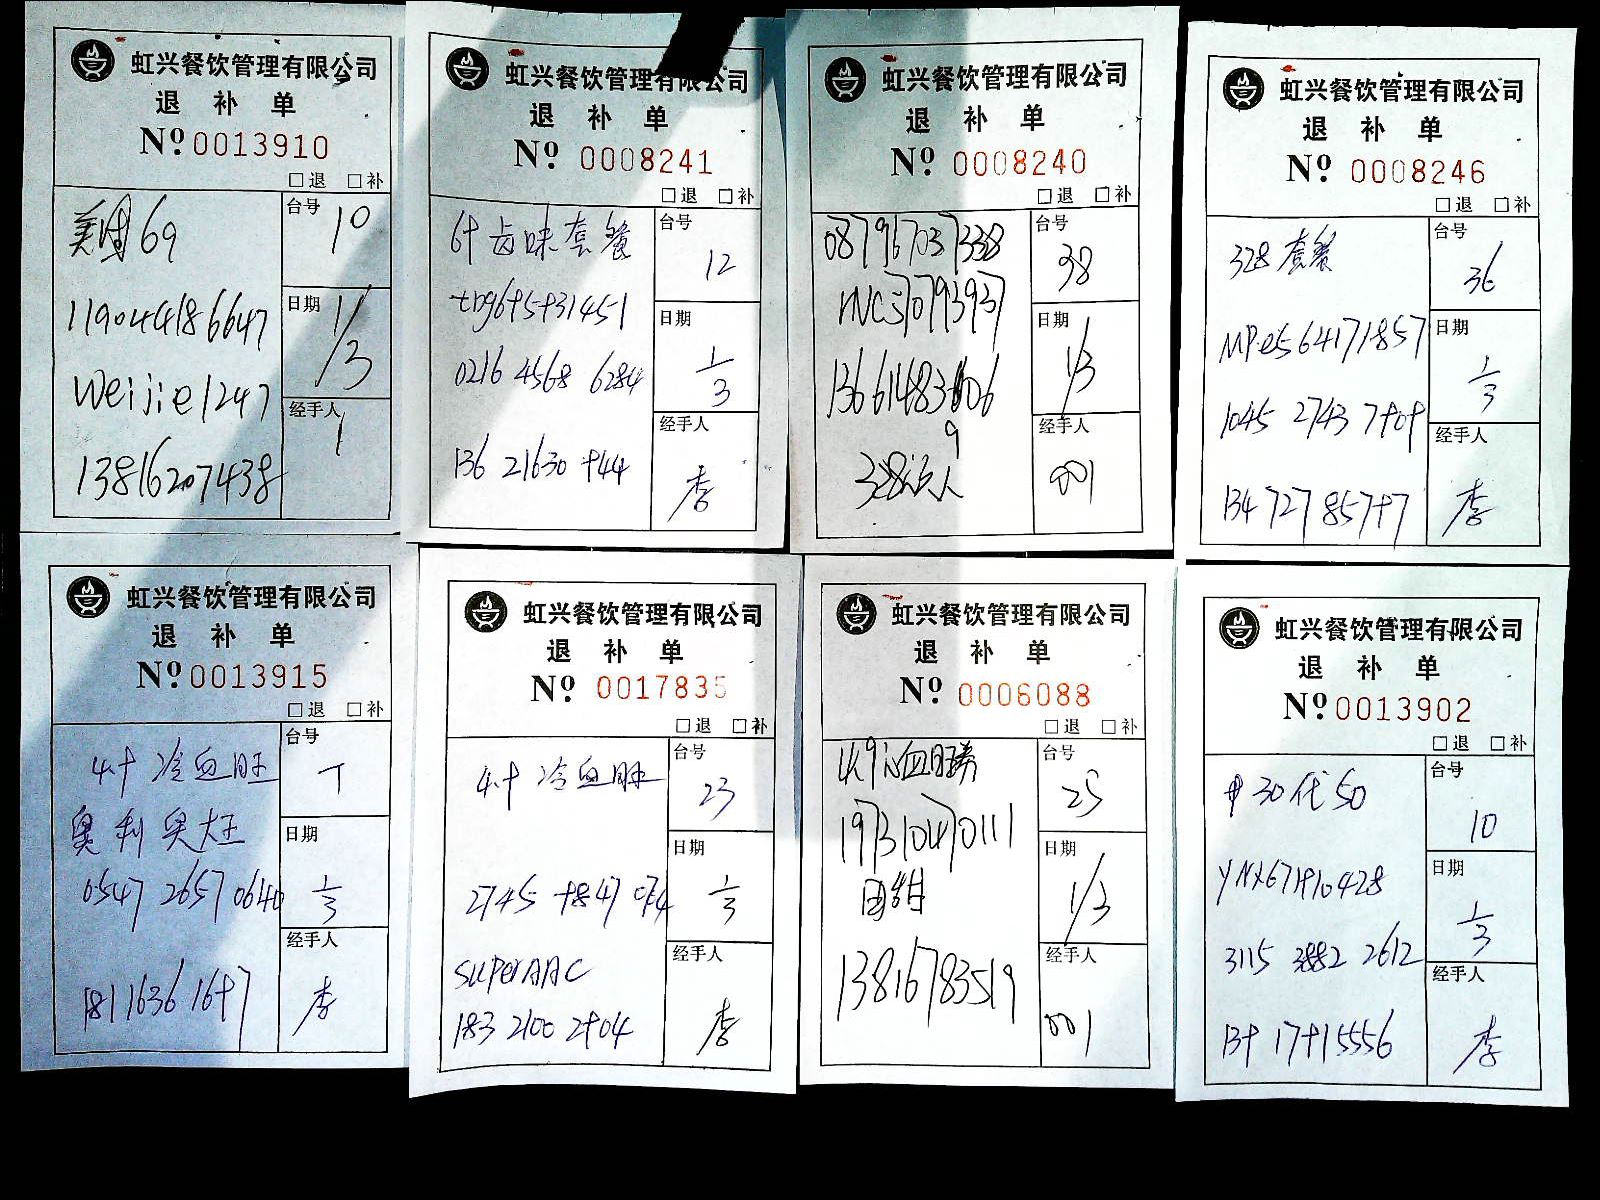 虹兴餐饮管理有限公司
退 补 单
Nº 0013910
□退 □补
美团69
11904418 6647
Weijie1247
13816207438
台号
10
日期
1/3
经手人
1
虹兴餐饮管理有限公司
退 补 单
Nº 0008241
□退 □补
卤味套餐
0216 4568 6284
台号
12
日期
1/3
经手人
李
虹兴餐饮管理有限公司
退 补 单
Nº 0008240
□退 □补
台号
38
日期
1/3
经手人
001
虹兴餐饮管理有限公司
退 补 单
Nº 0008246
□退 □补
328套餐
台号
36
日期
1/3
经手人
李
虹兴餐饮管理有限公司
退 补 单
Nº 0013915
□退 □补
冷血旺
奥利奥大王
0547 2657 0640
台号
日期
1/3
经手人
李
虹兴餐饮管理有限公司
退 补 单
Nº 0017835
□退 □补
冷血旺
superAAC
台号
23
日期
1/3
经手人
李
虹兴餐饮管理有限公司
退 补 单
Nº 0006088
□退 □补
197310470111
13816783519
台号
25
日期
1/3
经手人
001
虹兴餐饮管理有限公司
退 补 单
Nº 0013902
□退 □补
30代50
3115 3882 2612
台号
10
日期
1/3
经手人
李